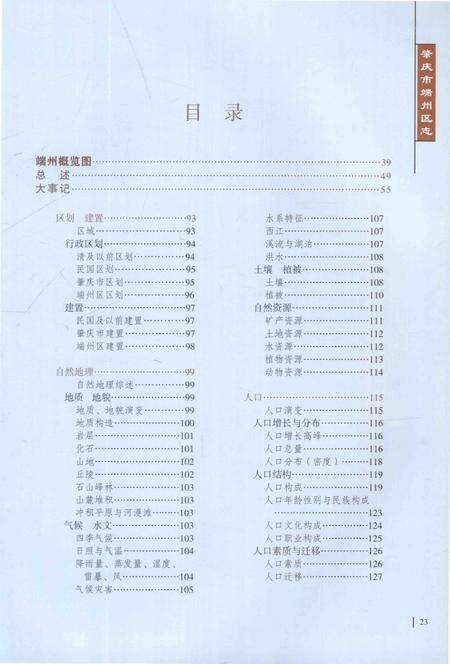 肇庆市端州区志
目 录
端州概览图 39
总 述 49
大事记 55
区划 建置 93
区域 93
行政区划 94
清及以前区划 94
民国区划 95
肇庆市区划 95
端州区区划 96
建置 97
民国及以前建置 97
肇庆市建置 97
端州区建置 98
自然地理 99
自然地理综述 99
地质 地貌 99
地质、地貌演变 99
地质构造 100
岩层 101
化石 101
山地 102
丘陵 102
石山峰林 103
山麓堆积 103
冲积平原与河漫滩 103
气候 水文 103
四季气候 103
日照与气温 104
降雨量、蒸发量、湿度、
雷暴、风 104
气候灾害 105
水系特征 107
西江 107
溪流与湖泊 107
洪水 108
土壤 植被 108
土壤 108
植被 110
自然资源 111
矿产资源 111
土地资源 112
水资源 112
植物资源 113
动物资源 114
人口 115
人口演变 115
人口增长与分布 116
人口增长高峰 116
人口总量 116
人口分布（密度） 118
人口结构 119
人口构成 119
人口年龄性别与民族构成
123
人口文化构成 124
人口职业构成 125
人口素质与迁移 126
人口素质 126
人口迁移 127
23